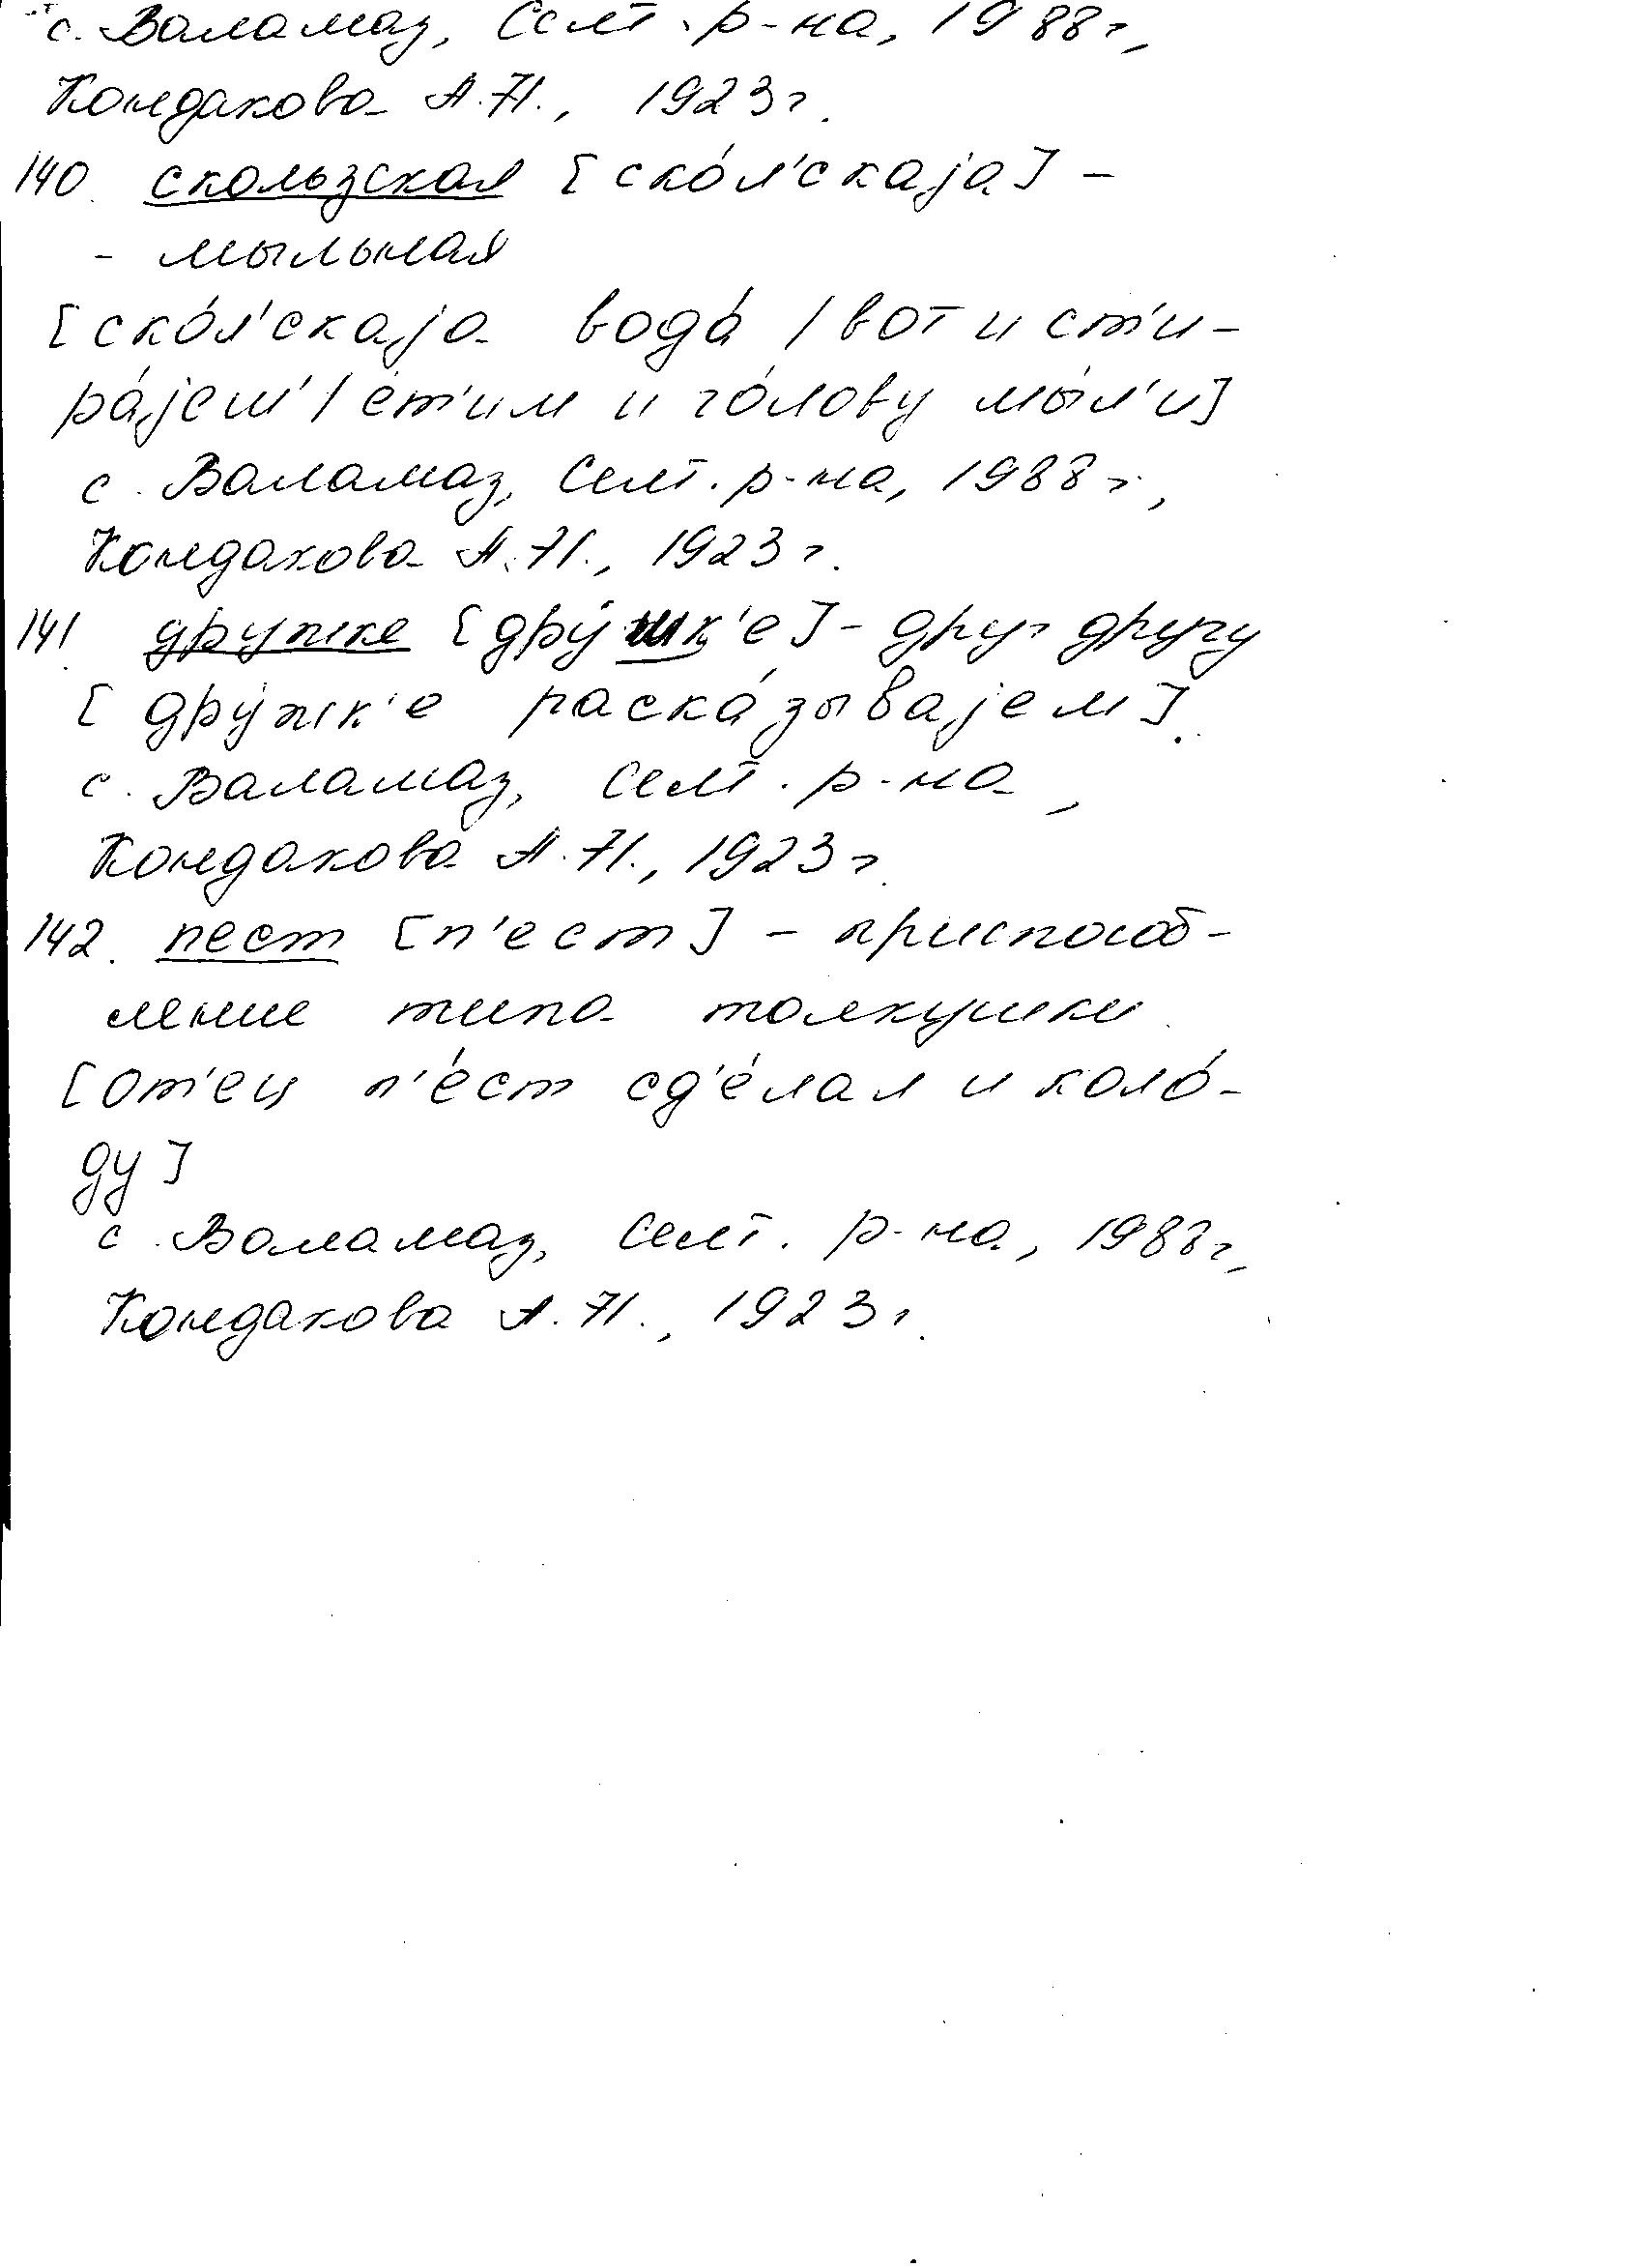 с. Валамаз, Селт. р-на, 1988 г,
Кондакова А.П., 1923 г.
140. скользская [ско́л'скаjа] –
- мыльная
[ско́л'скаjа вода́ / вот и ст'и-
ра́jеш' / е́т'им и го́лову мы́л'и]
с. Валамаз, Селт. р-на, 1988 г.,
Кондакова А.П., 1923 г.
141. дружке [дру́шк'е] – друг другу
[дру́жк'е раска́зываjем].
с. Валамаз, Селт. р-на,
Кондакова А.П., 1923 г.
142. пест [п'ест] – приспособ-
ление типа толкушки.
[от'ец п'е́ст сд'е́лал и коло́-
ду]
с. Валамаз, Селт. р-на, 1988 г,
Кондакова А.П., 1923 г.